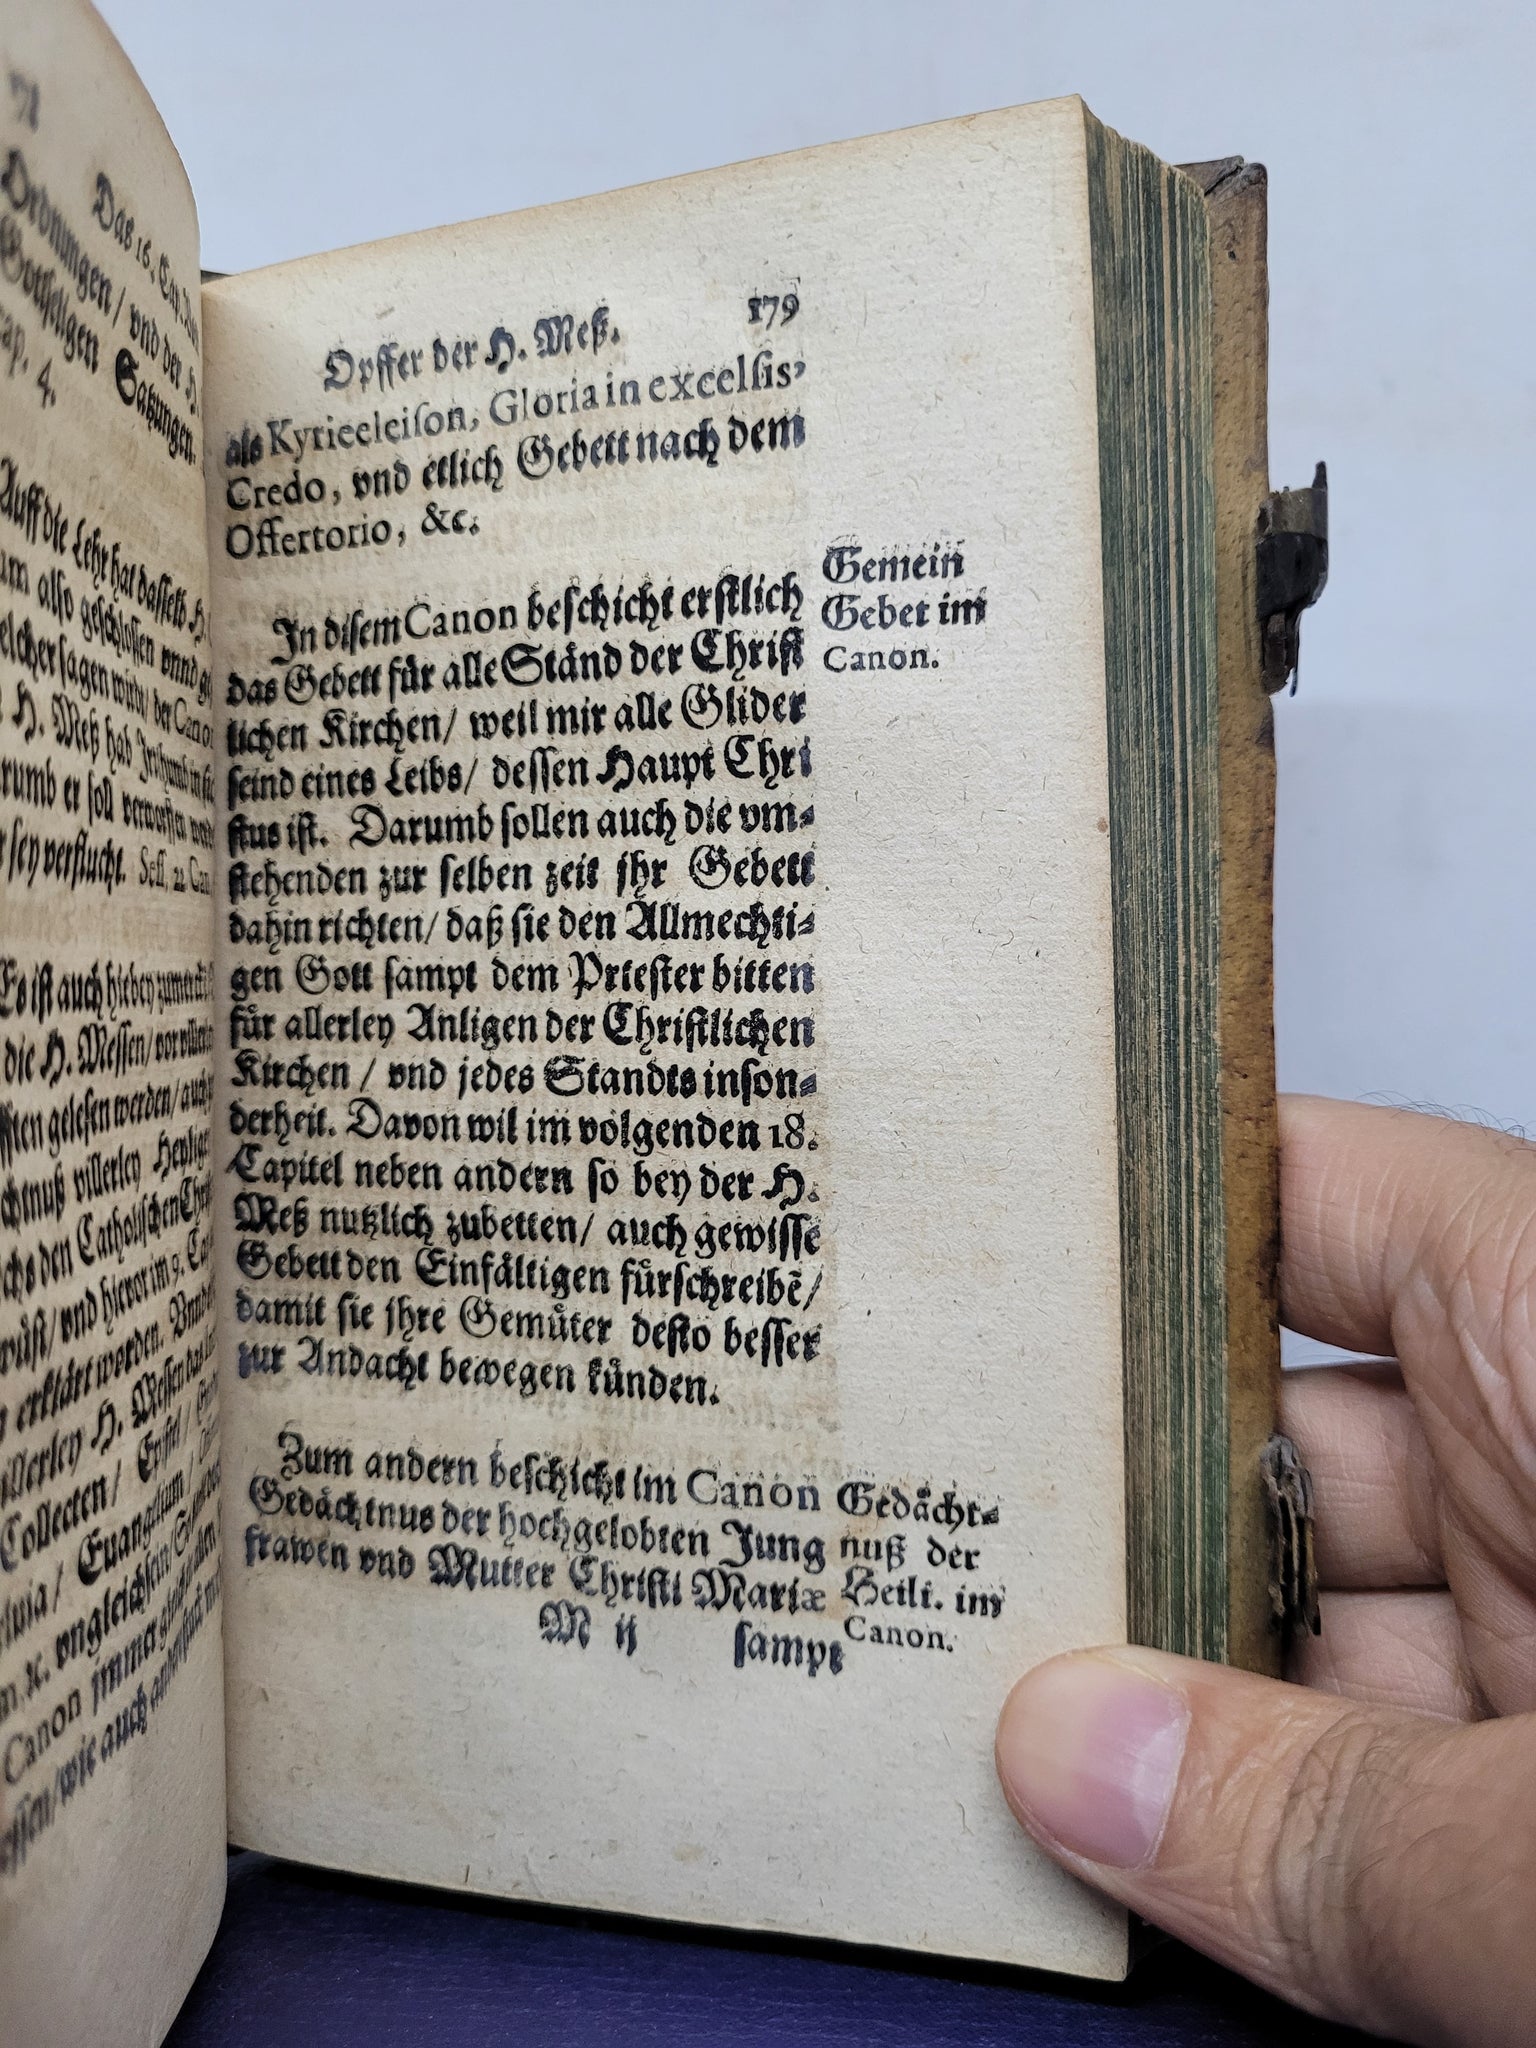 Das 16. Cap. Von
Ordnungen / vnd der H.
Gottseligen Satzungen.
cap. 4.
Auff die Lehr hat dasselb H.
also geschlossen vnnd
welcher sagen wirdt / der Canon
H. Meß hab Irrthumb in
darumb er soll verworffen
sey verflucht. Sess. 22 Can.
Es ist auch hiebey zumercken
die H. Messen / vor
gelesen werden / auch
villerley Heylige
den Catholischen
vnd hievor im 9. Cap.
erklärt worden.
villerley H. Messen das
Collecten / Epistel /
Euangelium /
vngleich sein /
Canon jmmer
wie auch
Opffer der H. Meß. 179
als Kyrieeleison, Gloria in excelsis,
Credo, vnd etlich Gebett nach dem
Offertorio, &c.
In disem Canon beschicht erstlich
das Gebett für alle Ständ der Christ
lichen Kirchen / weil mir alle Glider
seind eines Leibs / dessen Haupt Chri
stus ist. Darumb sollen auch die vm⸗
stehenden zur selben zeit jhr Gebett
dahin richten / daß sie den Allmechti⸗
gen Gott sampt dem Priester bitten
für allerley Anligen der Christlichen
Kirchen / vnd jedes Standts inson⸗
derheit. Davon wil im volgenden 18.
Capitel neben andern so bey der H.
Meß nutzlich zubetten / auch gewisse
Gebett den Einfältigen fürschreibē /
damit sie jhre Gemüter desto besser
zur Andacht bewegen künden.
Zum andern beschicht im Canon
Gedächtnus der hochgelobten Jung
frawen vnd Mutter Christi Mariæ
M ij sampt
Gemein
Gebet im
Canon.
Gedächt⸗
nuß der
Heili. im
Canon.